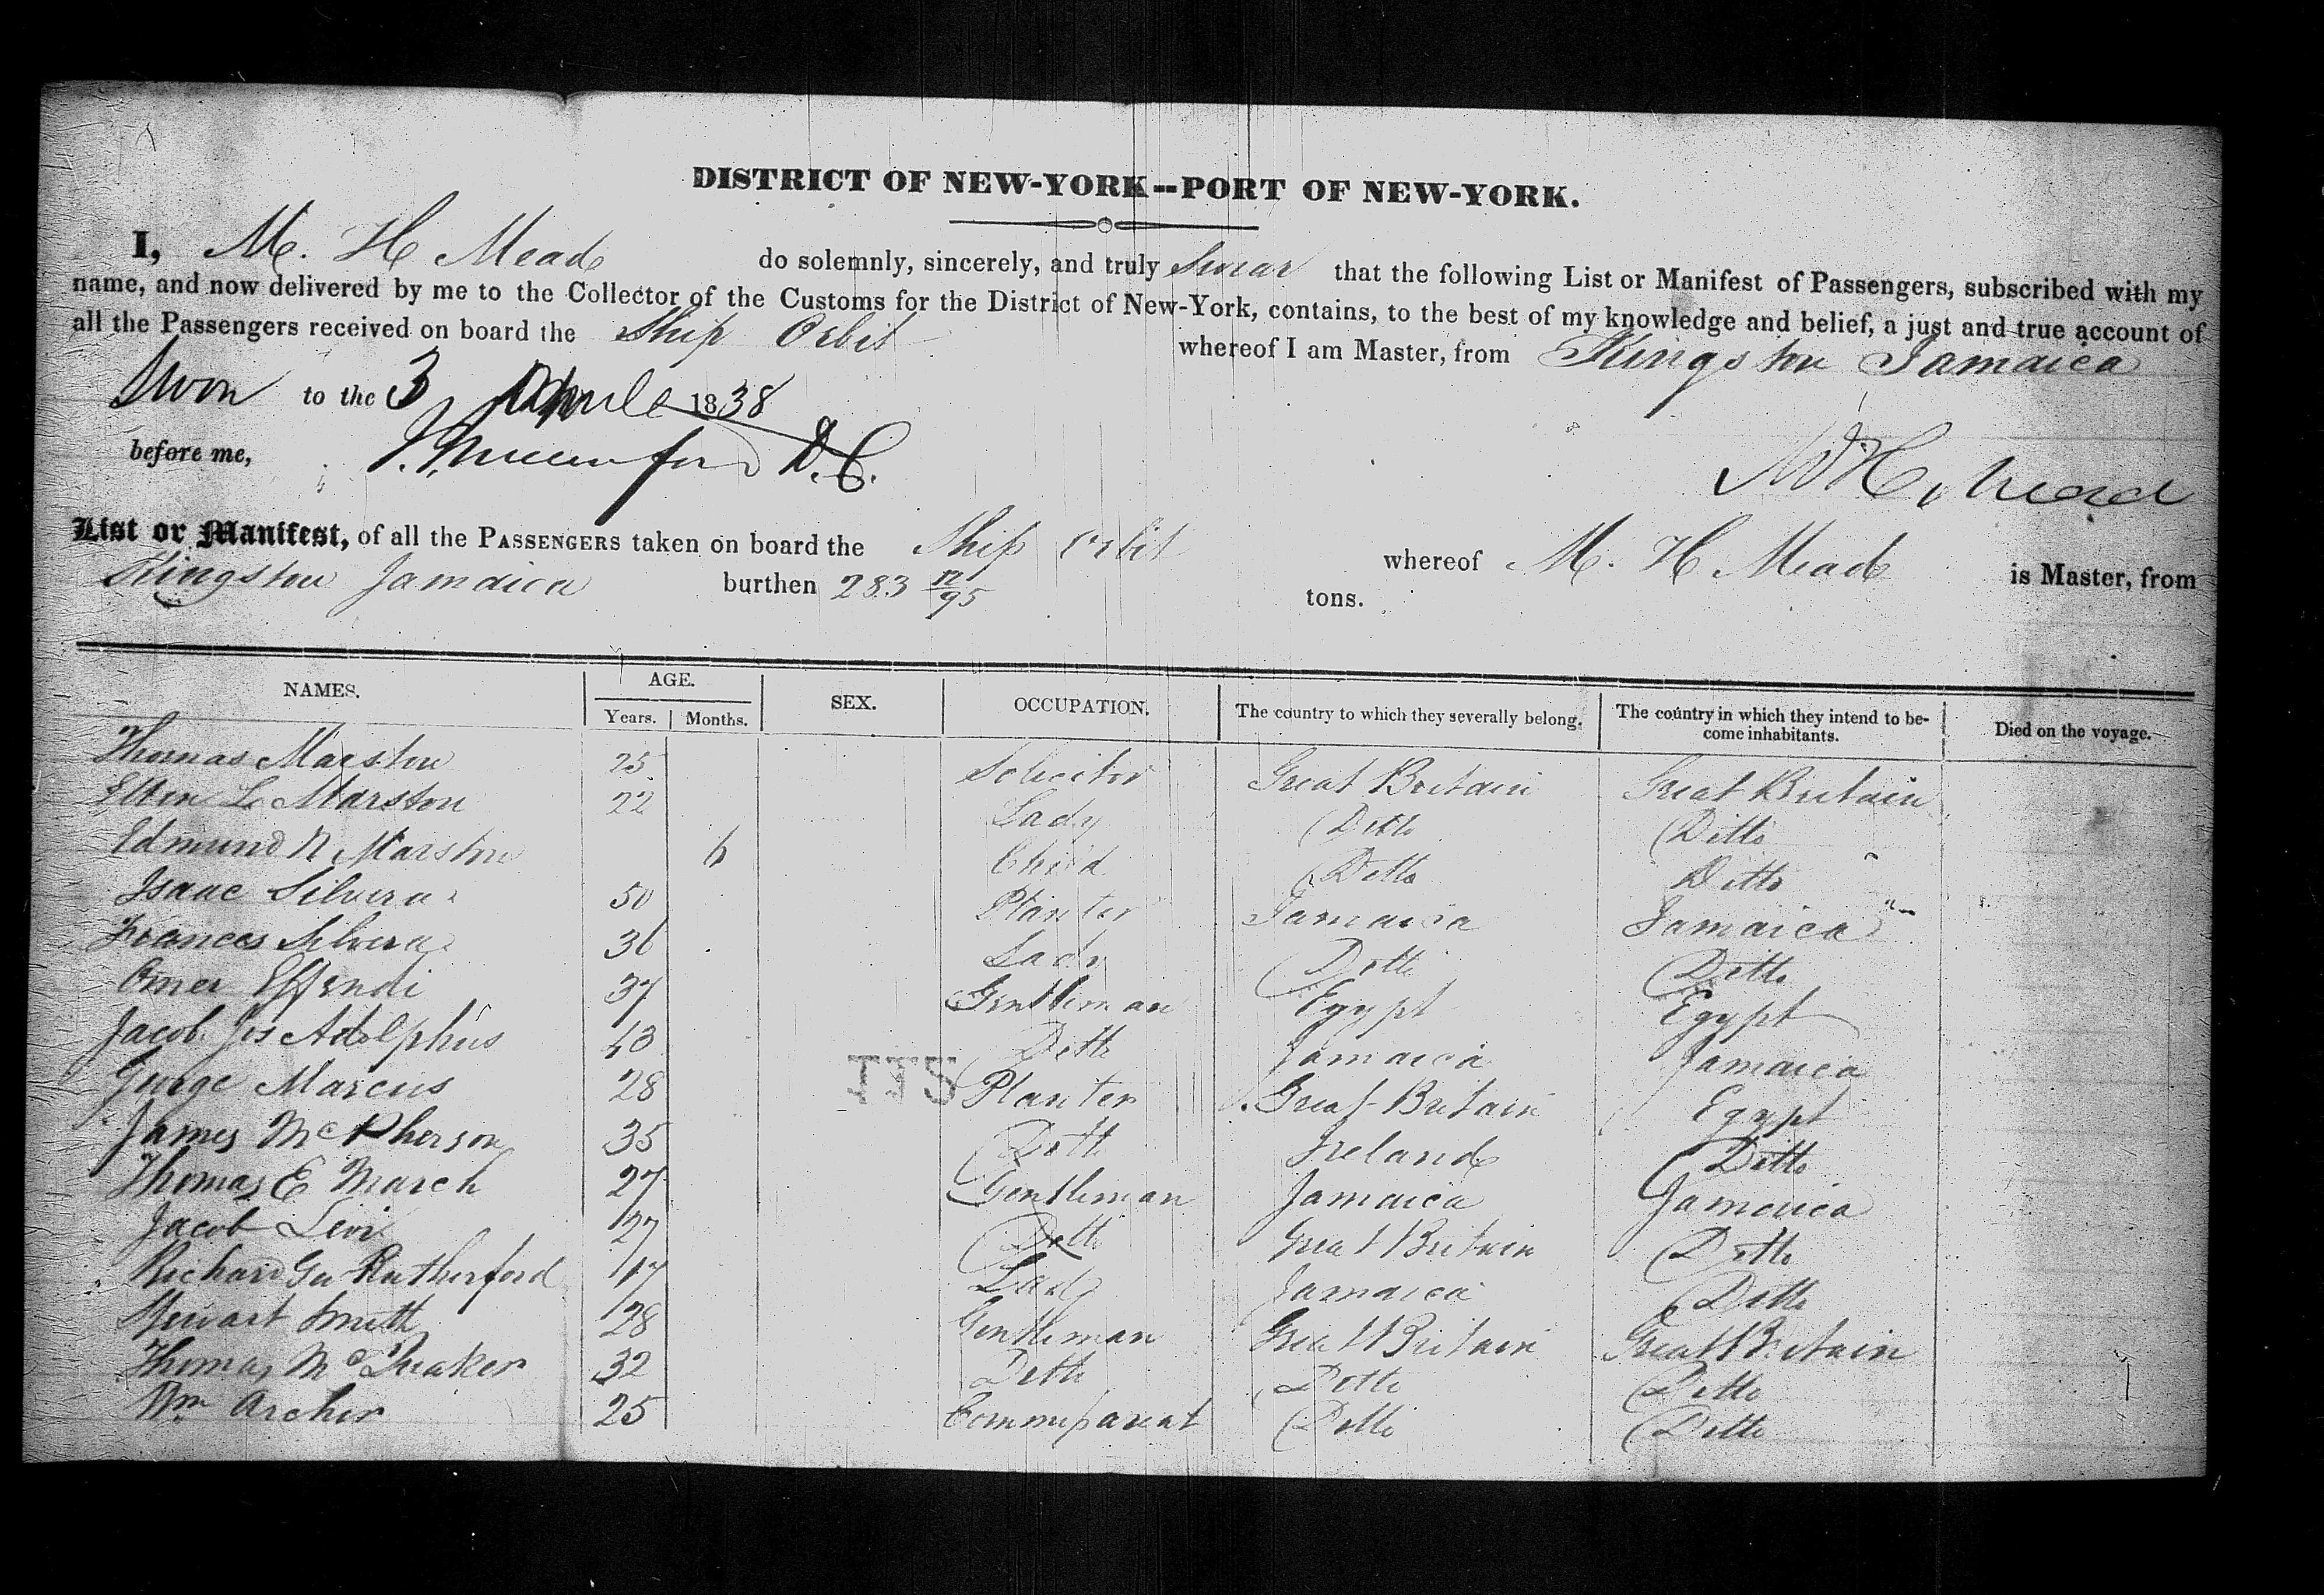 DISTRICT OF NEW-YORK--PORT OF NEW-YORK.
I, M. H Meade do solemnly, sincerely, and truly Swear that the following List or Manifest of Passengers, subscribed with my
name, and now delivered by me to the Collector of the Customs for the District of New-York, contains, to the best of my knowledge and belief, a just and true account of
all the Passengers received on board the Ship Orbit whereof I am Master, from Kingston Jamaica
Sworn to the 3 Aprile 1838
before me, D.C.
M H Mead
List or Manifest, of all the PASSENGERS taken on board the Ship Orbit whereof M. H Meade is Master, from
Kingston Jamaica burthen 283 12/95 tons.
NAMES. AGE. SEX. OCCUPATION. The country to which they severally belong. The country in which they intend to be- come inhabitants. Died on the voyage.
Years. Months.
Thomas Marston 25 Solicitor Great Britain Great Britain
Ellen L Marston 22 Lady Ditto Ditto
Edmund N Marston 6 Child Ditto Ditto
Isaac Silvera 50 Planter Jamaica Jamaica
Frances Silvera 36 Lady Ditto Ditto
Omer Effendi 37 Gentleman Egypt Egypt
Jacob Jos Adolphus 43 Ditto Jamaica Jamaica
George Marcus 28 Planter Great Britain Egypt
James McPherson 35 Ditto Ireland Ditto
Thomas E March 27 Gentleman Jamaica Jamaica
Jacob Levi 27 Ditto Great Britain Ditto
Richard Geo Rutherford 17 Lad Jamaica Ditto
Stewart Smith 28 Gentleman Great Britain Great Britain
Thomas McQuaker 32 Ditto Ditto Ditto
Wm Archer 25 Commissariat Ditto Ditto